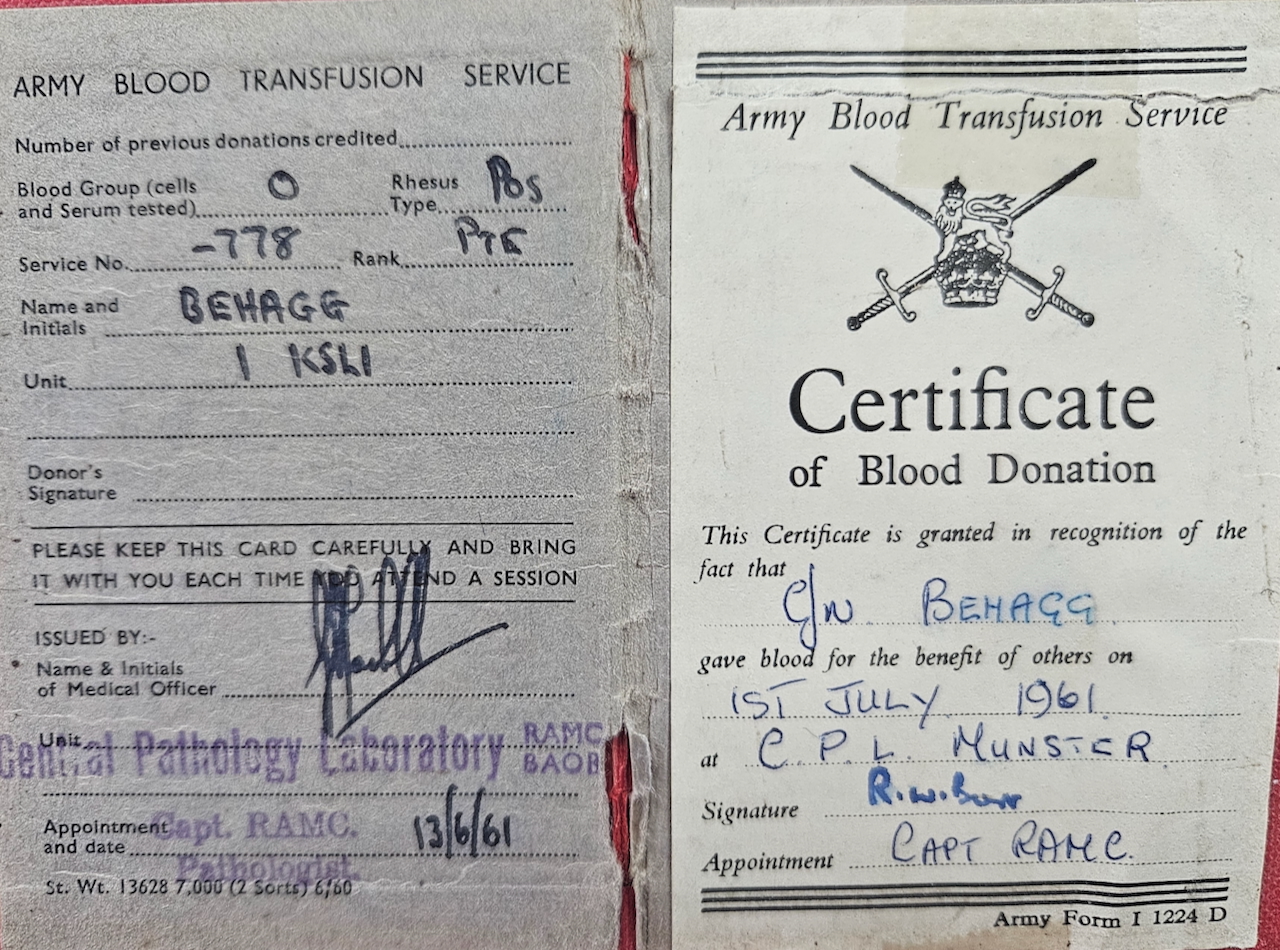 ARMY BLOOD TRANSFUSION SERVICE
Number of previous donations credited
Blood Group (cells and Serum tested) O Rhesus Type Pos
Service No. -778 Rank PTE
Name and Initials BEHAGG
Unit 1 KSLI
Donor's Signature
PLEASE KEEP THIS CARD CAREFULLY AND BRING
IT WITH YOU EACH TIME YOU ATTEND A SESSION
ISSUED BY:-
Name & Initials
of Medical Officer
Unit
Central Pathology Laboratory RAMC BAOR
Capt. RAMC.
Appointment and date 13/6/61
Pathologist.
St. Wt. 13628 7,000 (2 Sorts) 6/60
Army Blood Transfusion Service
Certificate
of Blood Donation
This Certificate is granted in recognition of the
fact that
BEHAGG
gave blood for the benefit of others on
1ST JULY 1961.
at C.P.L. MUNSTER
Signature R.W.
Appointment CAPT RAMC.
Army Form I 1224 D